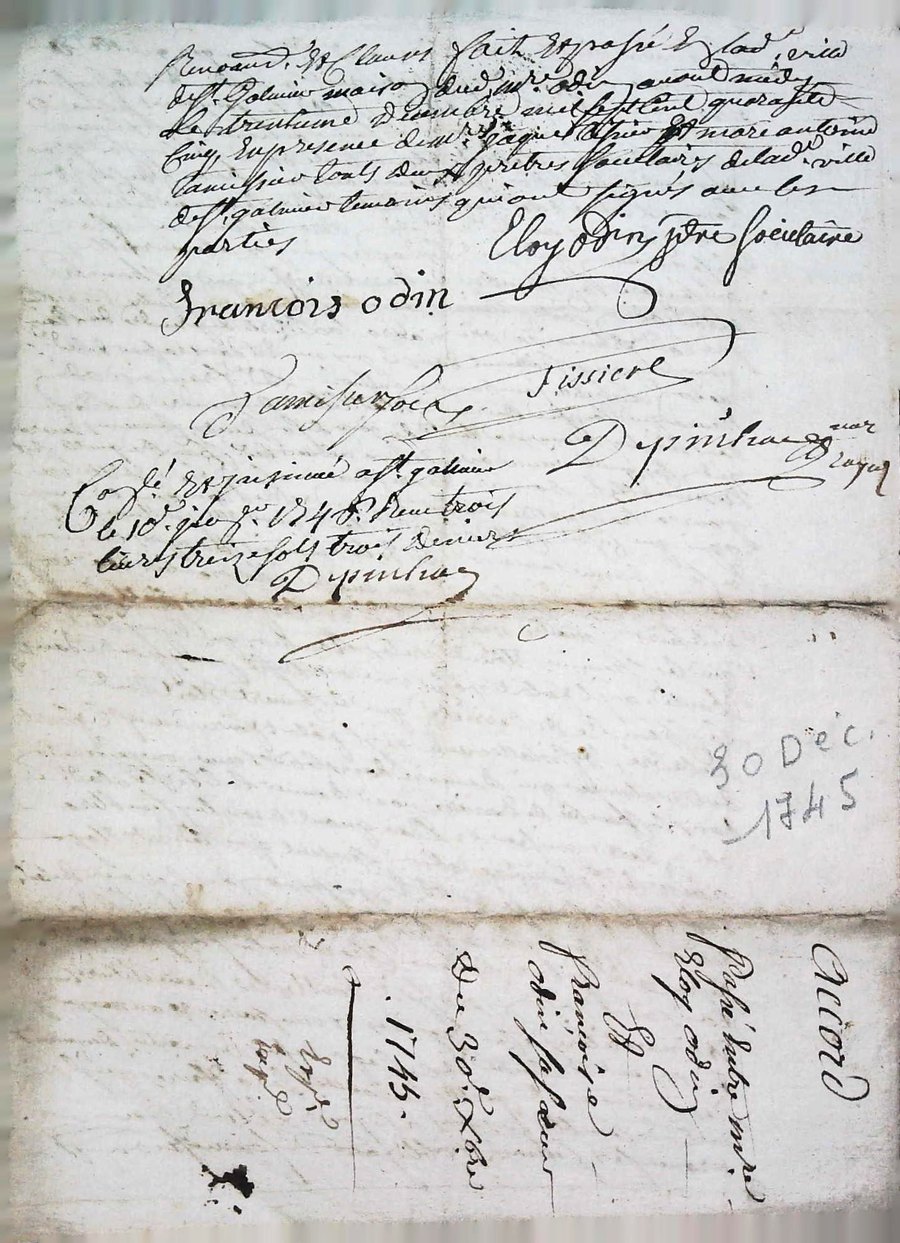 Renoncé. et Clauses fait et passé en lad. ville
de st. Galmier maison dud. mre. odin avant midy
le trentieme decembre mil sept cent quarante
Cinq, en presence de mre. et marc antoine
tamissier touts deux prêtres Societaires de lad. ville
de st. galmier temoins qui ont signés avec les
parties
Eloy odin ptre societaire
françois odin
Tamissier soc.
fissiere
Depinhac nore
royal
Controllé et insinué a st. galmier
le 10e. 1746. Receu trois
livres treize sols trois deniers
Depinhac
30 Déc.
1745
Accord
Passé entre mre
Eloy odin
Et
françoise
odin sa sœur
Du 30e. Xbre
1745.